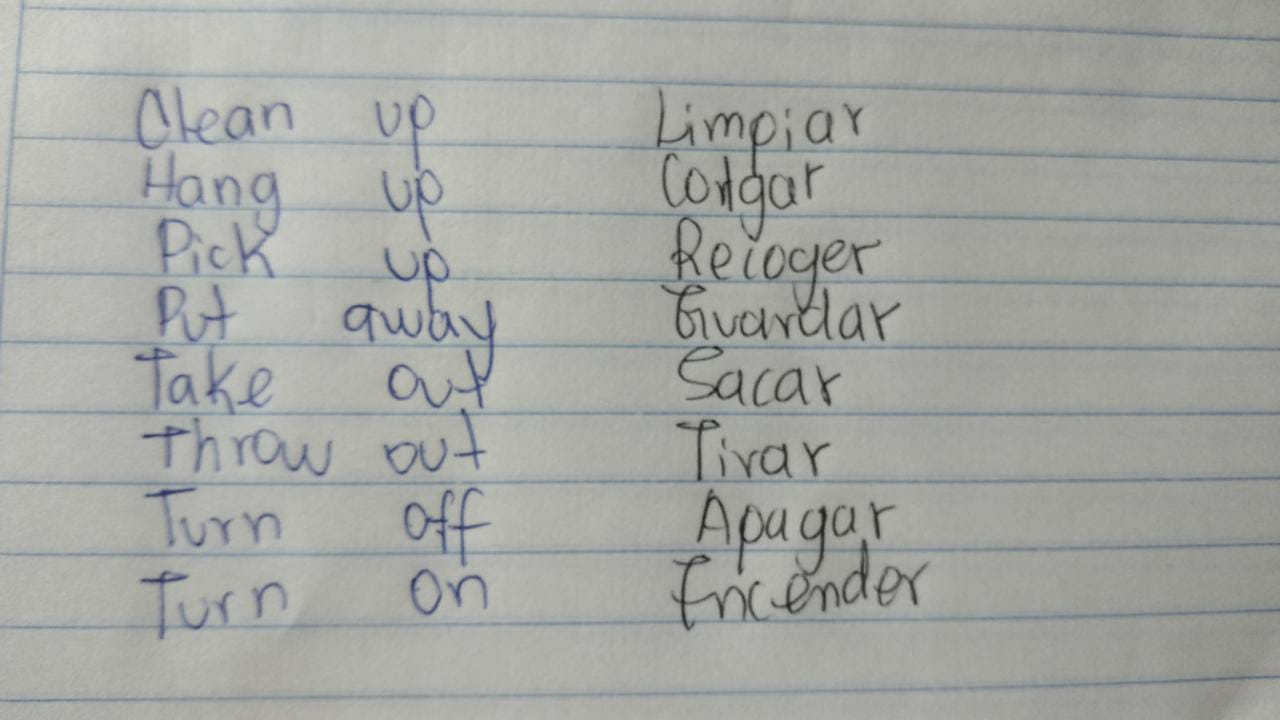 Clean up Limpiar
Hang up Colgar
Pick up Recoger
Put away Guardar
Take out Sacar
Throw out Tirar
Turn off Apagar
Turn on Encender